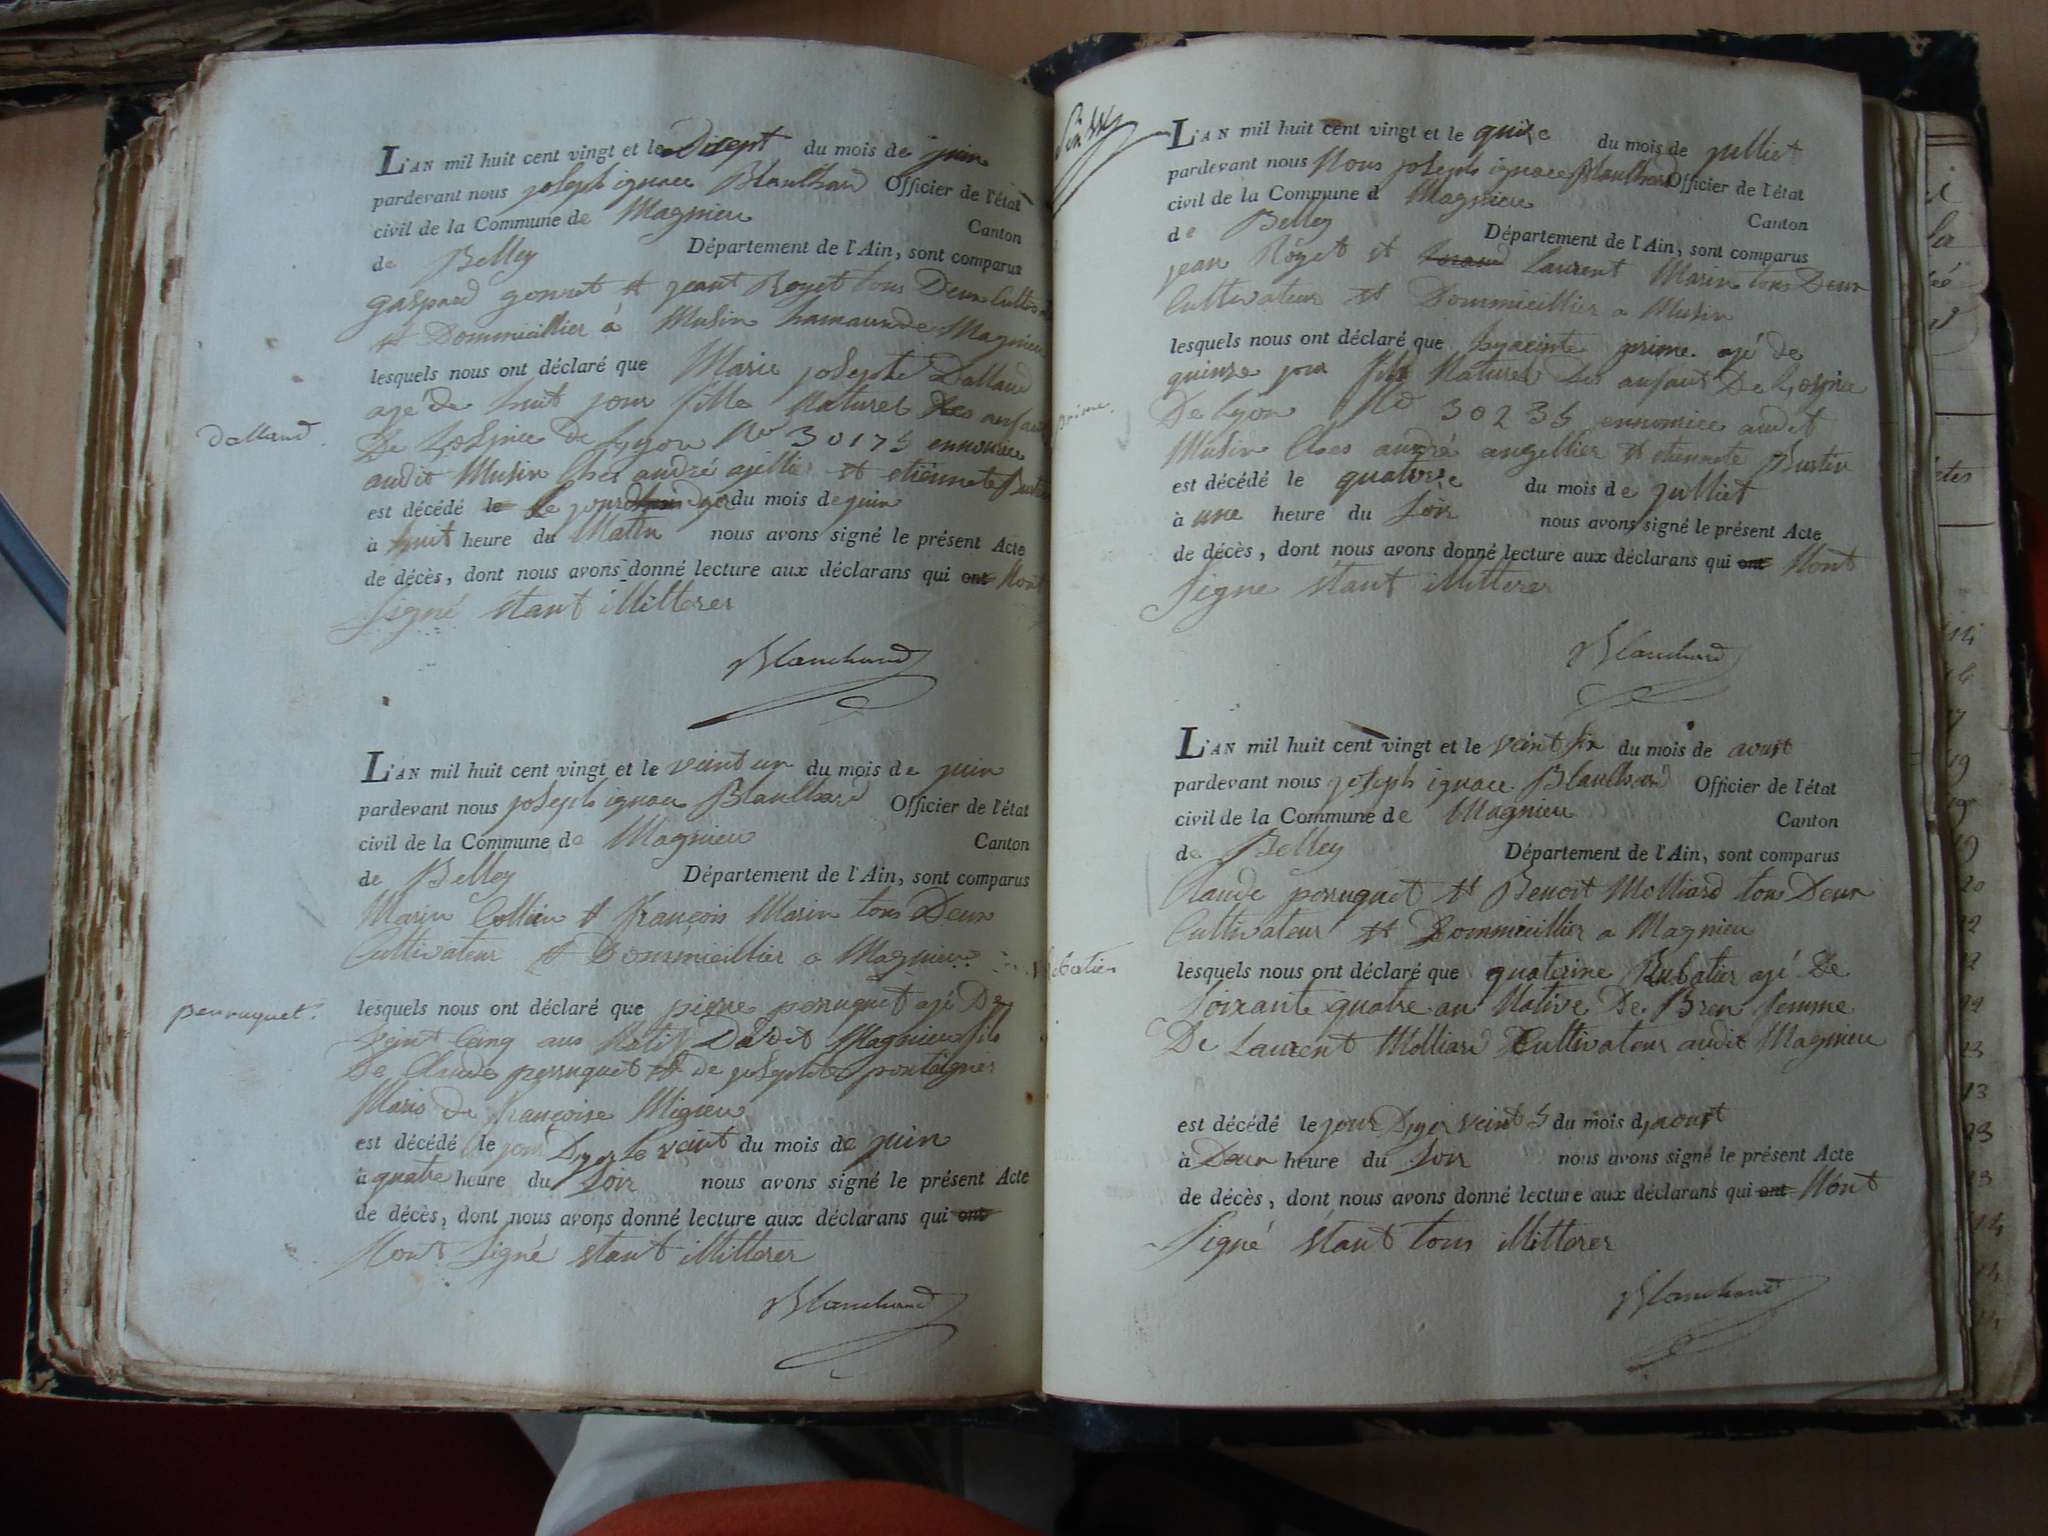 L'AN mil huit cent vingt et le Disept du mois de juin
pardevant nous joseph ignace Blanlhard Officier de l'état
civil de la Commune de Magnieu Canton
de Belley Département de l'Ain, sont comparus
gaspard gonnet et jeant Royet tous Deux Cultiva
et Dommicillier à Musin hamaunde Magnieu
lesquels nous ont déclaré que Marie josephte Dalland
agé de huit jour fille Naturel des anfant
Dalland.
De L'ospice de Lyon No 30175 ennourice
audit Musin Ches andré ajellier et etiennete
est décédé le Le jourdhui du mois de juin
à huit heure du Matin nous avons signé le présent Acte
de décès, dont nous avons donné lecture aux déclarans qui ont Nont
Signé étant illitterer
Blanchard
L'AN mil huit cent vingt et le veintun du mois de juin
pardevant nous joseph ignace Blanlhard Officier de l'état
civil de la Commune de Magnieu Canton
de Belley Département de l'Ain, sont comparus
Marin Collien et françois Marin tous Deux
Cultivateur et Dommicillier a Magnieu
perruquet.
lesquels nous ont déclaré que pierre perruquet agé De
veint Cinq ans Natif Dudit Magnieu fils
De Claude perruquet et de josephte
Maris de françoise Migieu
est décédé le jour Dyer le veint du mois de juin
à quatre heure du Soir nous avons signé le présent Acte
de décès, dont nous avons donné lecture aux déclarans qui ont
Nont Signé étant illitterer
Blanchard
L'AN mil huit cent vingt et le quize du mois de julliet
pardevant nous Nous joseph ignace Blanlhard Officier de l'état
civil de la Commune d Magnieu Canton
de Belley Département de l'Ain, sont comparus
jean Royet et Laurent Marin tous Deux
Cultivateur et Dommicillier a Musin
lesquels nous ont déclaré que hyacinte prime agé de
quinze jour fils Naturel des anfant De L'ospice
prime.
De Lyon No 30235 ennourice audit
Musin Ches andré angellier et etiennete Burtin
est décédé le quatorze du mois de julliet
à une heure du Soir nous avons signé le présent Acte
de décès, dont nous avons donné lecture aux déclarans qui ont Nont
Signe étant illitterer
Blanchard
L'AN mil huit cent vingt et le veint six du mois de avoust
pardevant nous joseph ignace Blanlhard Officier de l'état
civil de la Commune de Magnieu Canton
de Belley Département de l'Ain, sont comparus
Claude perruquet et Benoit Molliard tous Deux
Cultivateur et Dommicillier a Magnieu
lesquels nous ont déclaré que quaterine Rubatier agé De
Soixante quatre an Native De Bren femme
De Laurent Molliard Cultivateur audit Magnieu
est décédé le jour Dyer veint 5 du mois d'aoust
à Deux heure du Soir nous avons signé le présent Acte
de décès, dont nous avons donné lecture aux déclarans qui ont Nont
Signé étant tous illitterer
Blanchard